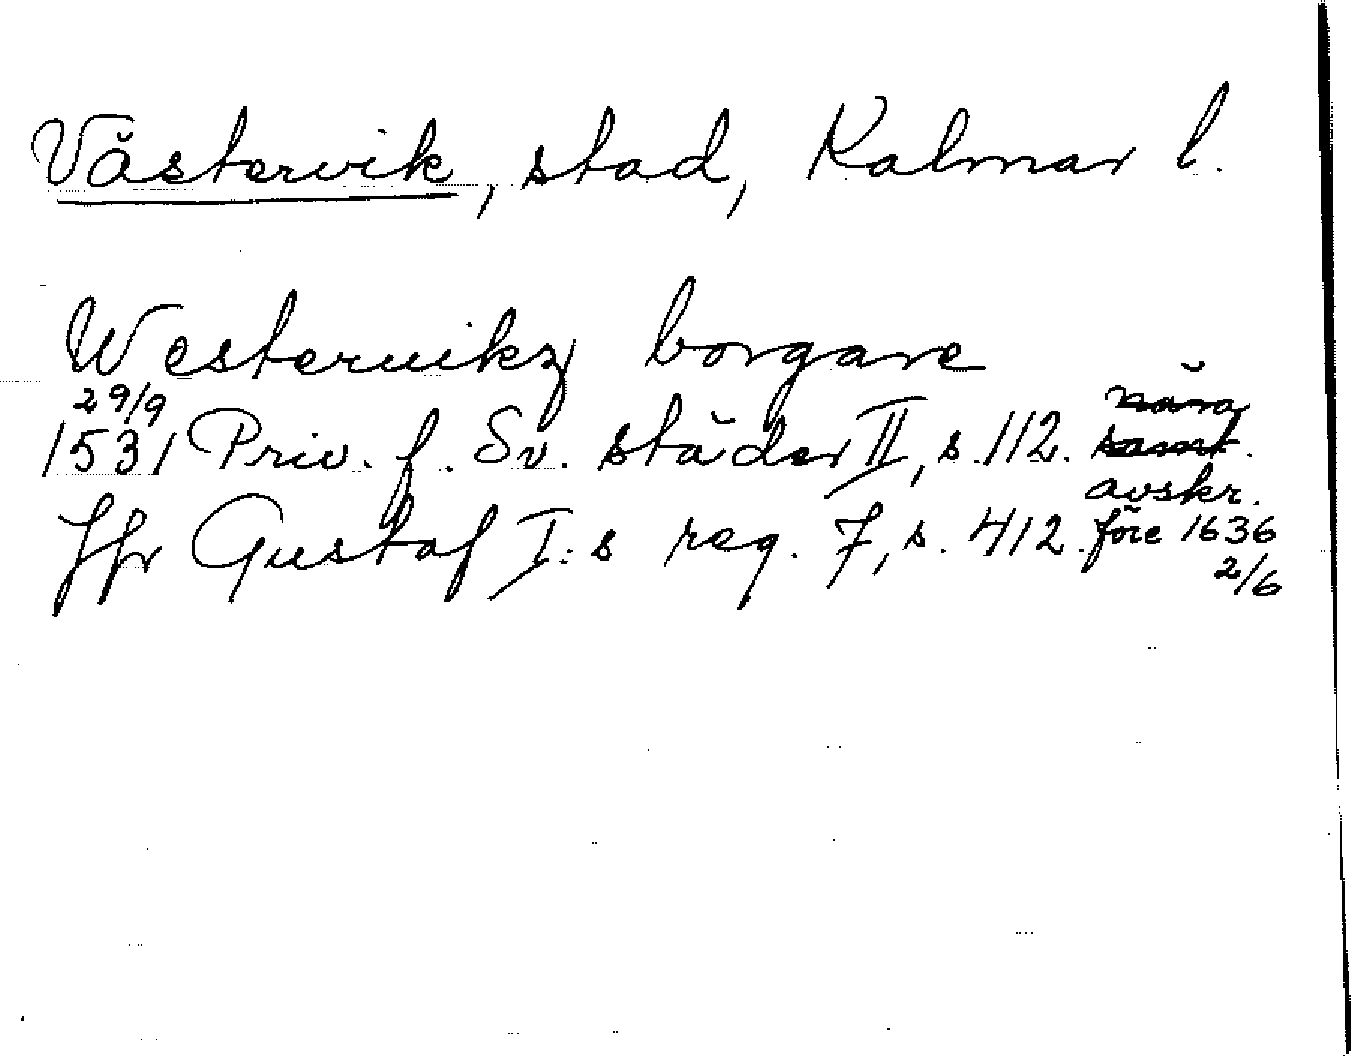 Västervik, stad, Kalmar l.
Westervikz borgare
29/9
1531 Priv. f. Sv. städer II, s. 112.
avskr.
Jfr Gustaf I:s reg. 7, s. 412. före 1636
2/6